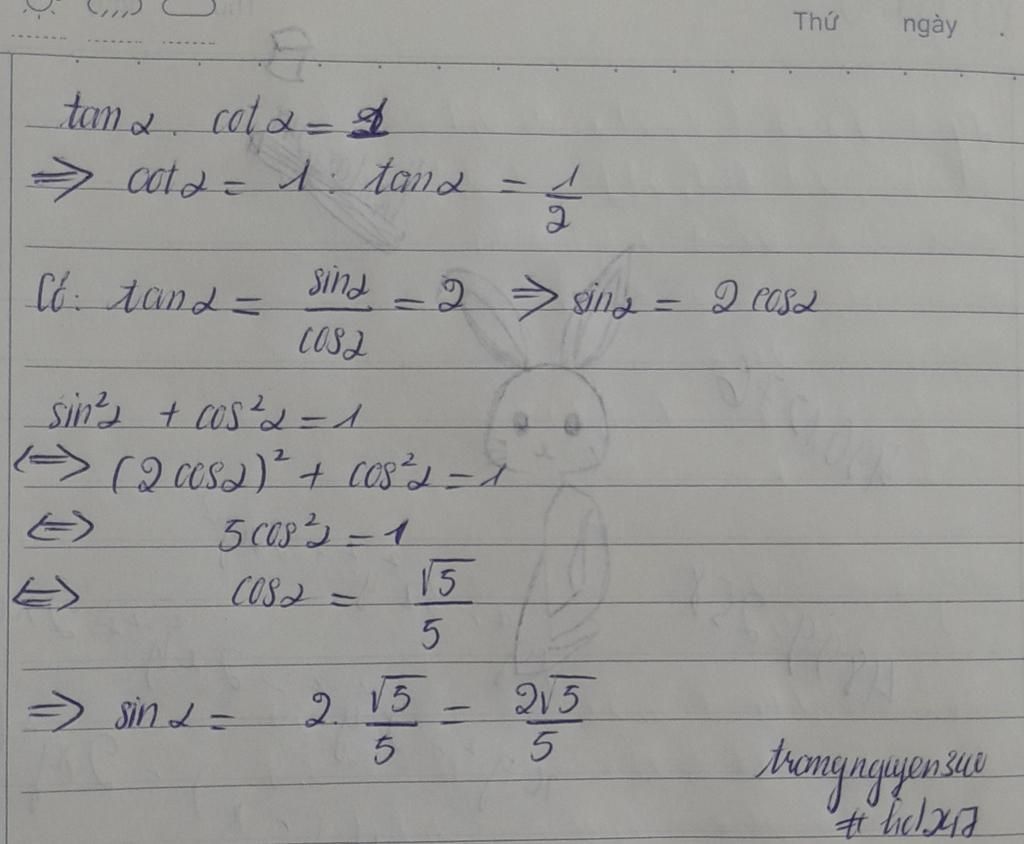 Thứ ngày .
tanα . cotα = 1
⇒ cotα = 1 : tanα = 1/2
Có: tanα = sinα/cosα = 2 ⇒ sinα = 2 cosα
sin²α + cos²α = 1
⇔ (2 cosα)² + cos²α = 1
⇔ 5cos²α = 1
⇔ cosα = √5/5
⇒ sinα = 2. √5/5 = 2√5/5